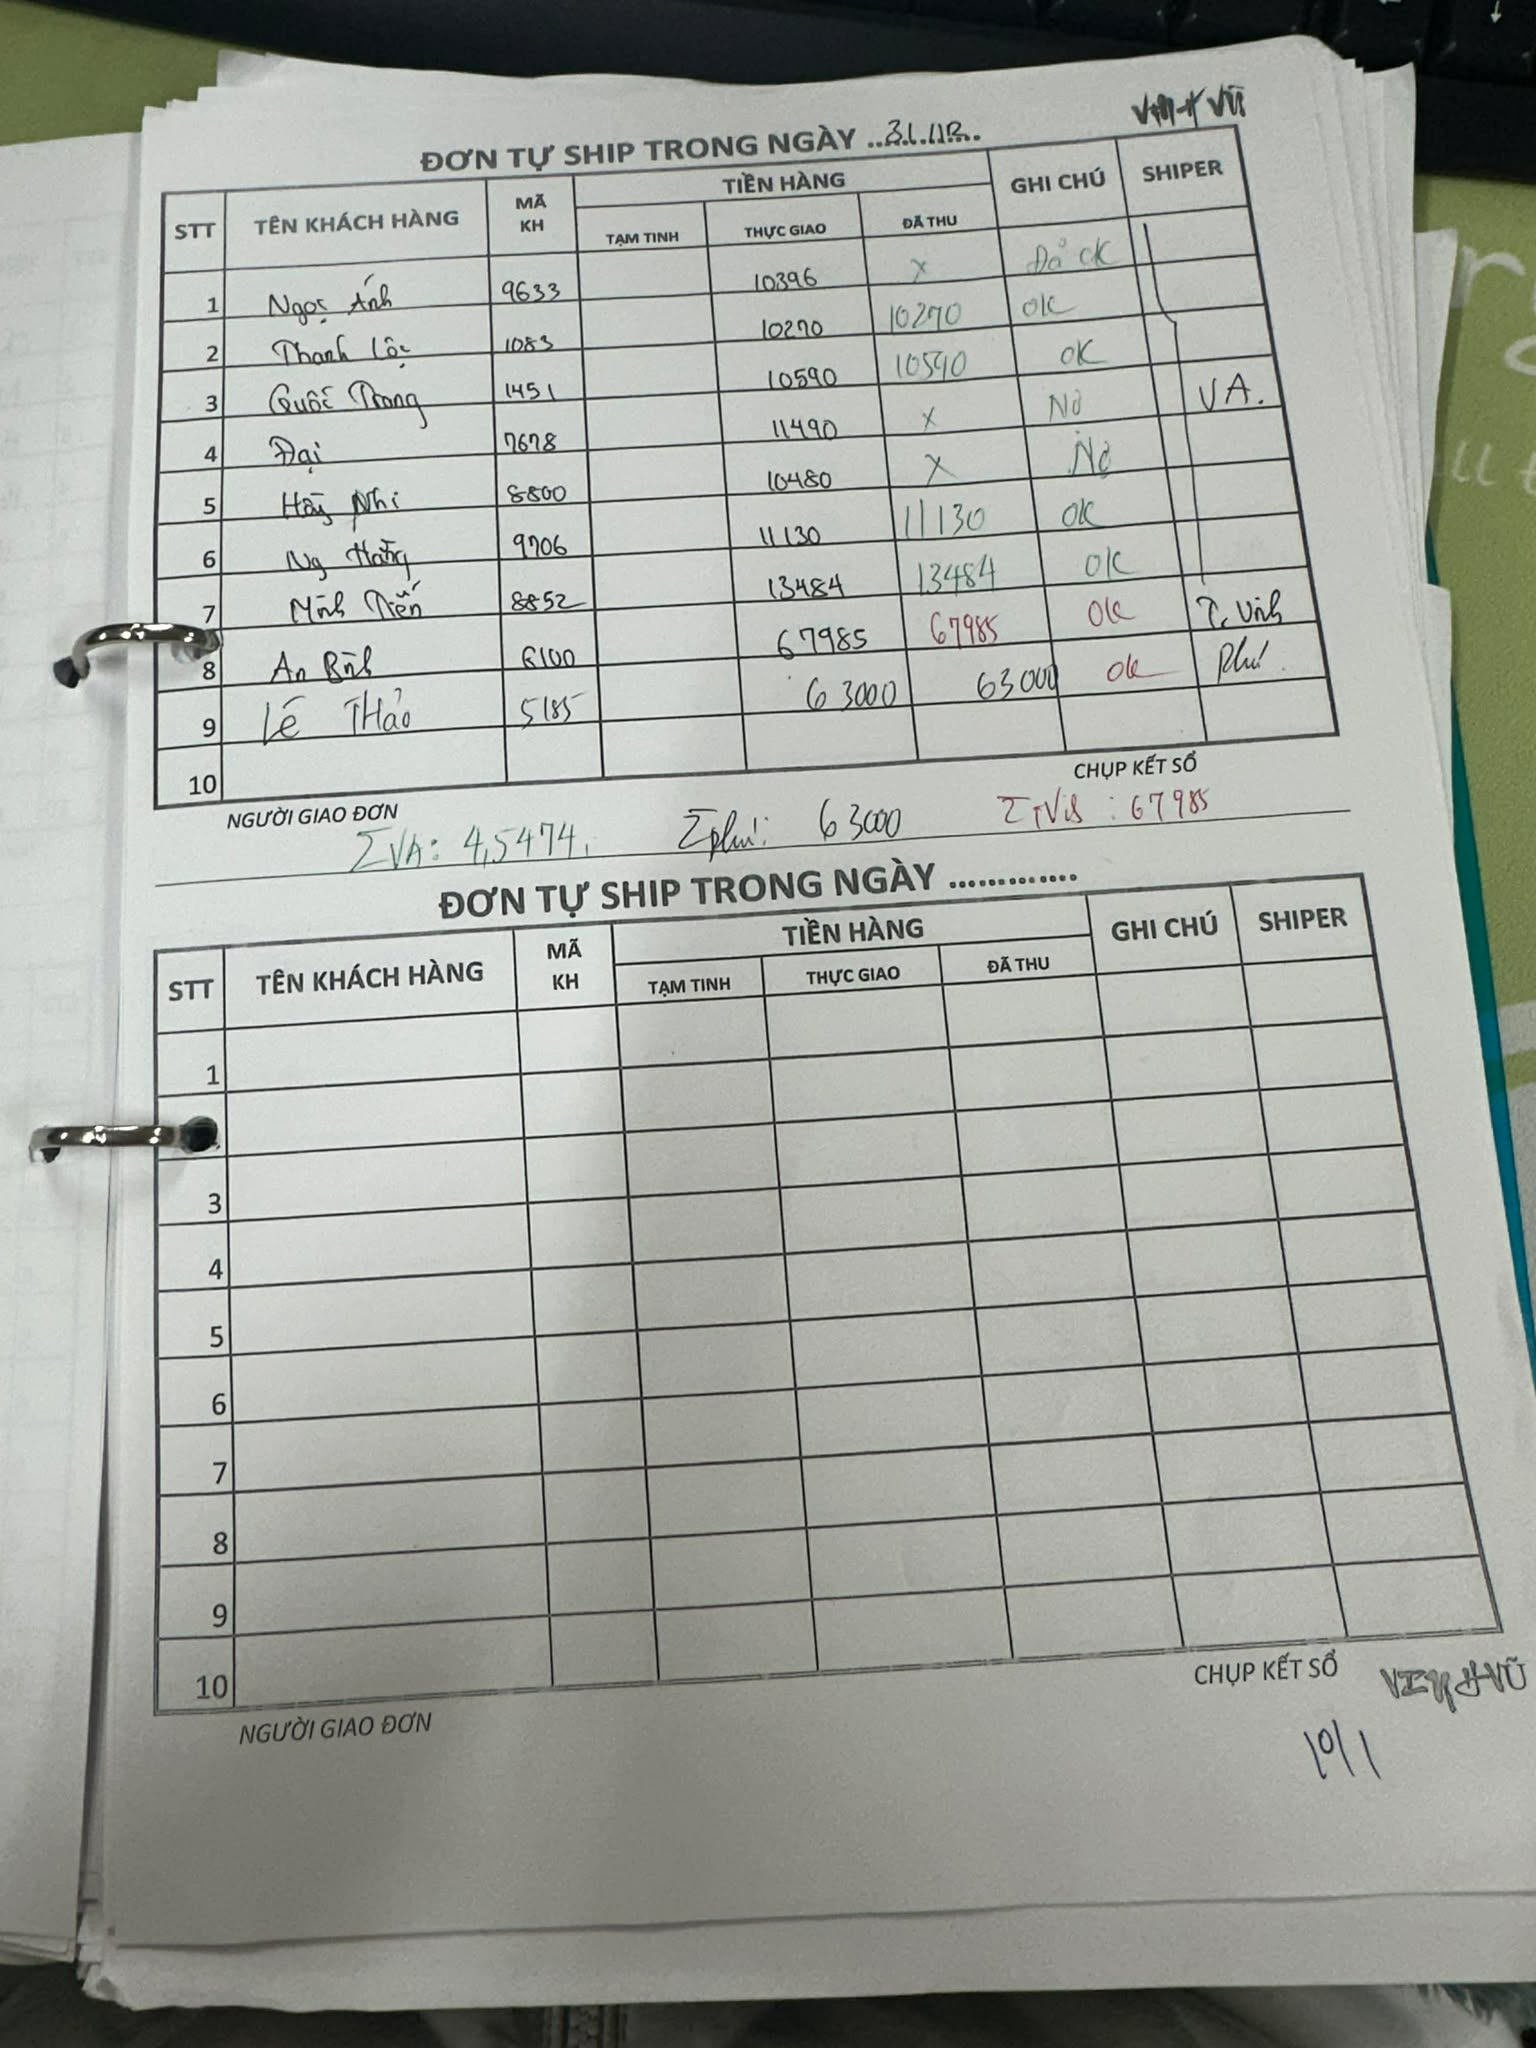 VINH VŨ
ĐƠN TỰ SHIP TRONG NGÀY ..31.12..
STT TÊN KHÁCH HÀNG MÃ KH TIỀN HÀNG GHI CHÚ SHIPER
TẠM TINH THỰC GIAO ĐÃ THU
1 Ngọc Ánh 9633 10396 x Đã CK
2 Thanh Lộc 1083 10270 10270 OK
3 Quốc Trong 1451 10590 10590 OK
4 Đại 7678 11490 x Nợ VA.
5 Hồng Nhi 8800 10480 x Nợ
6 Ng Hằng 9706 11130 11130 OK
7 Minh Tiến 8852 13484 13484 OK
8 An Bình 6100 67985 67985 OK T. Vinh
9 Lê THảo 5185 63000 63000 ok Phú.
10
NGƯỜI GIAO ĐƠN CHỤP KẾT SỔ
ΣVA: 4,5474, Σphú: 63000 ΣTVi : 67985
ĐƠN TỰ SHIP TRONG NGÀY .............
STT TÊN KHÁCH HÀNG MÃ KH TIỀN HÀNG GHI CHÚ SHIPER
TẠM TINH THỰC GIAO ĐÃ THU
1
3
4
5
6
7
8
9
10
NGƯỜI GIAO ĐƠN CHỤP KẾT SỔ VINH VŨ
10/1